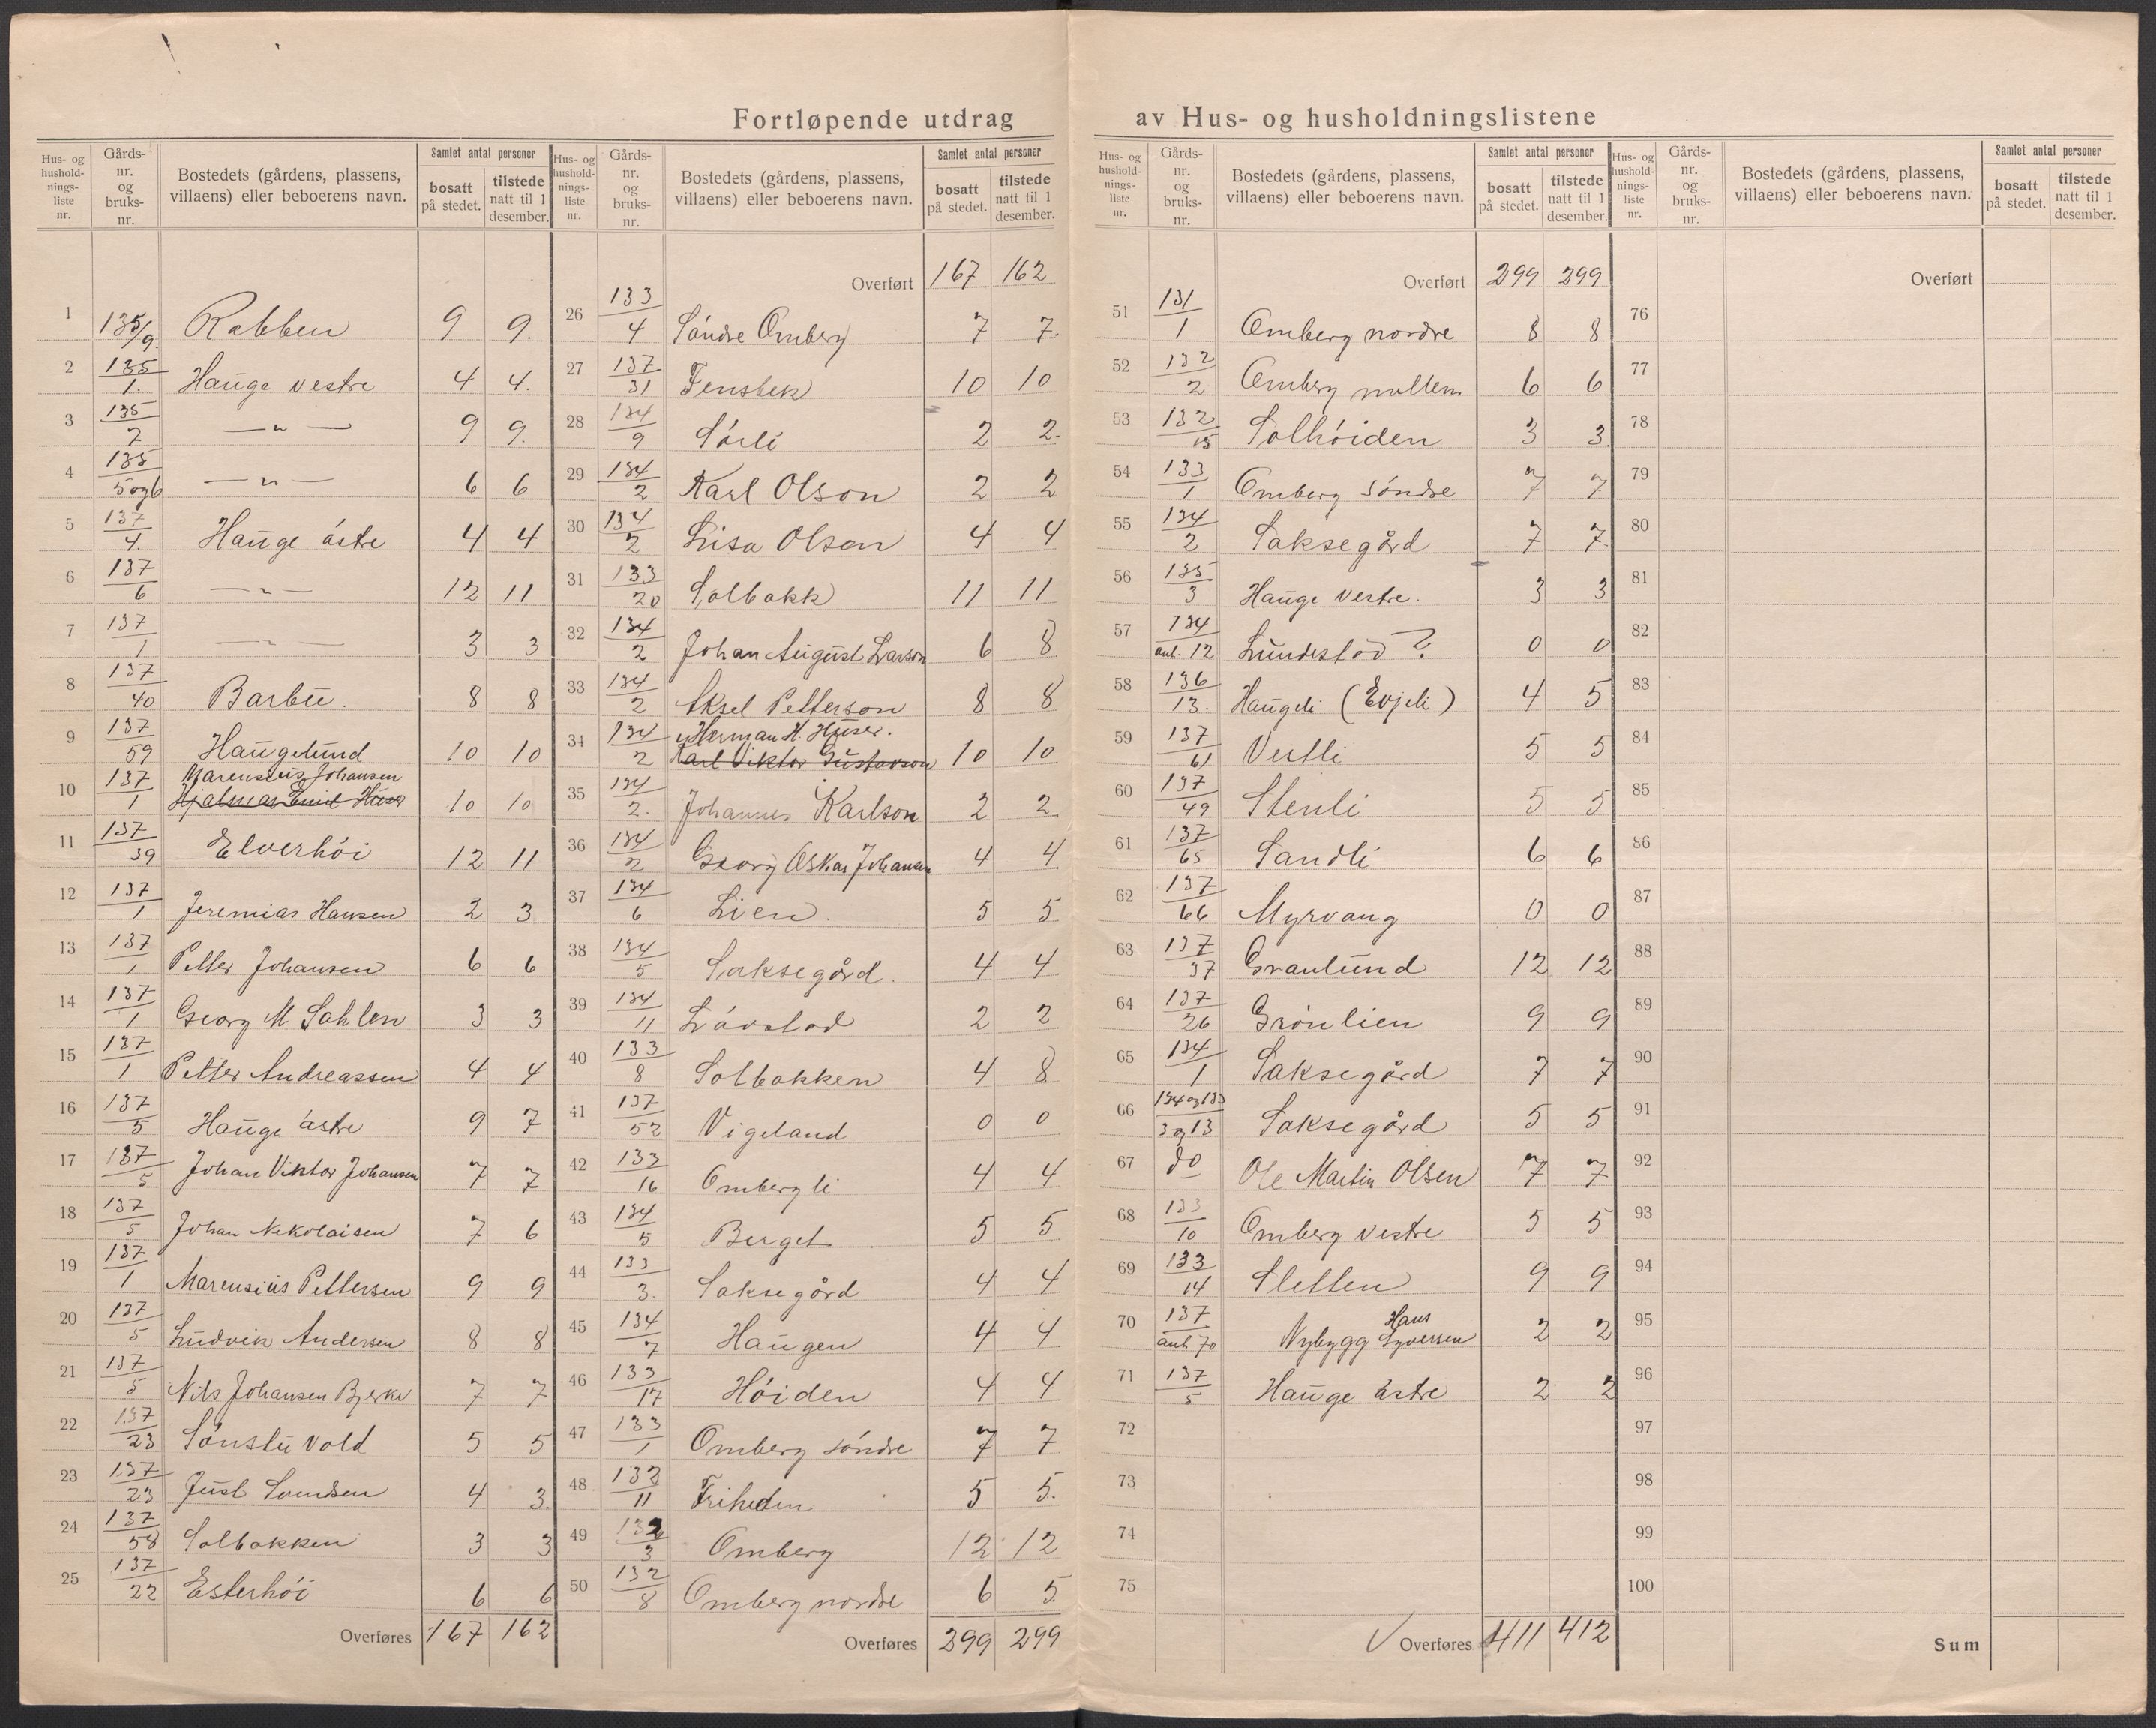 Fortløpende utdrag av Hus- og husholdningslistene
Hus- og hushold-nings-liste nr. | Gårds-nr. og bruks-nr. | Bostedets (gårdens, plassens, villaens) eller beboerens navn. | Samlet antal personer: bosatt på stedet. | tilstede natt til 1 desember.
1 135/9. Rabben 9 9.
2 135/1. Hauge vestre 4 4.
3 135/2 — " — 9 9.
4 135/5 og 6 — " — 6 6
5 137/4. Hauge østre 4 4
6 137/6 — " — 12 11
7 137/1 — " — 3 3
8 137/40 Barbu. 8 8
9 137/59 Haugelund 10 10
10 137/1 Marensius Johansen 10 10
Hjalmar Emil Huser
11 137/39 Elverhöi 12 11
12 137/1 Jeremias Hansen 2 3
13 137/1 Petter Johansen 6 6
14 137/1 Georg M. Sahlen 3 3
15 137/1 Petter Andreassen 4 4
16 137/5 Hauge østre 9 7
17 137/5 Johan Viktor Johansen 7 7
18 137/5 Johan Nikolaisen 7 6
19 137/1 Marensius Pettersen 9 9
20 137/5 Ludvik Andersen 8 8
21 137/5 Nils Johansen Bjerke 7 7
22 137/23 Sönstu vold 5 5
23 137/23 Just Svendsen 4 3
24 137/58 Solbakken 3 3
25 137/22 Esterhöi 6 6
Overføres 167 162
Hus- og hushold-nings-liste nr. | Gårds-nr. og bruks-nr. | Bostedets (gårdens, plassens, villaens) eller beboerens navn. | Samlet antal personer: bosatt på stedet. | tilstede natt til 1 desember.
Overført 167 162
26 133/4 Söndre Omberg 7 7.
27 137/31 Fensbek 10 10
28 134/9 Sörli 2 2.
29 134/2 Karl Olson 2 2
30 134/2 Lisa Olsen 4 4
31 133/20 Solbakk 11 11
32 134/2 Johan August Larson 6 8
33 134/2 Aksel Petterson 8 8
34 134/2 Herman H. Huser. 10 10
Karl Viktor Gustavson
35 134/2. Johannes Karlson 2 2.
36 134/2 Georg Oskar Johansen 4 4
37 134/6 Lien. 5 5
38 134/5 Saksegård. 4 4
39 134/11 Lövstad 2 2
40 133/8 Solbakken 4 8
41 137/52 Vigeland 0 0
42 133/16 Ombergli 4 4
43 134/5 Berget 5 5
44 133/3. Saksegård 4 4
45 134/7 Haugen 4 4
46 133/17 Höiden 4 4
47 133/1 Omberg söndre 7 7
48 132/11 Friheden 5 5.
49 132/3 Omberg 12 12
50 132/8 Omberg nordre 6 5.
Overføres 299 299
Hus- og hushold-nings-liste nr. | Gårds-nr. og bruks-nr. | Bostedets (gårdens, plassens, villaens) eller beboerens navn. | Samlet antal personer: bosatt på stedet. | tilstede natt til 1 desember.
Overført 299 299
51 131/1 Omberg nordre 8 8
52 132/2 Omberg mellem 6 6
53 132/15 Solhöiden 3 3
54 133/1 Omberg söndre 7 7
55 134/2 Saksegård 7 7.
56 135/3 Hauge vestre. 3 3
57 134/anl. 12 Lundestad ? 0 0
58 136/13. Haugeli (Evjeli) 4 5
59 137/61 Vestli 5 5
60 137/49 Stenli 5 5
61 137/65 Sandli 6 6
62 137/66 Myrvang 0 0
63 137/37 Granlund 12 12
64 137/26 Grönlien 9 9
65 134/1 Saksegård 7 7
66 134 og 133/3 og 13 Saksegård 5 5
67 do Ole Martin Olsen 7 7
68 133/10 Omberg vestre 5 5
69 133/14 Sletten 9 9
70 137/anl. 70 Nybygg Hans Syversen 2 2
71 137/5 Hauge østre 2 2
72
73
74
75
Overføres 411 412
Hus- og hushold-nings-liste nr. | Gårds-nr. og bruks-nr. | Bostedets (gårdens, plassens, villaens) eller beboerens navn. | Samlet antal personer: bosatt på stedet. | tilstede natt til 1 desember.
Overført
76
77
78
79
80
81
82
83
84
85
86
87
88
89
90
91
92
93
94
95
96
97
98
99
100
Sum